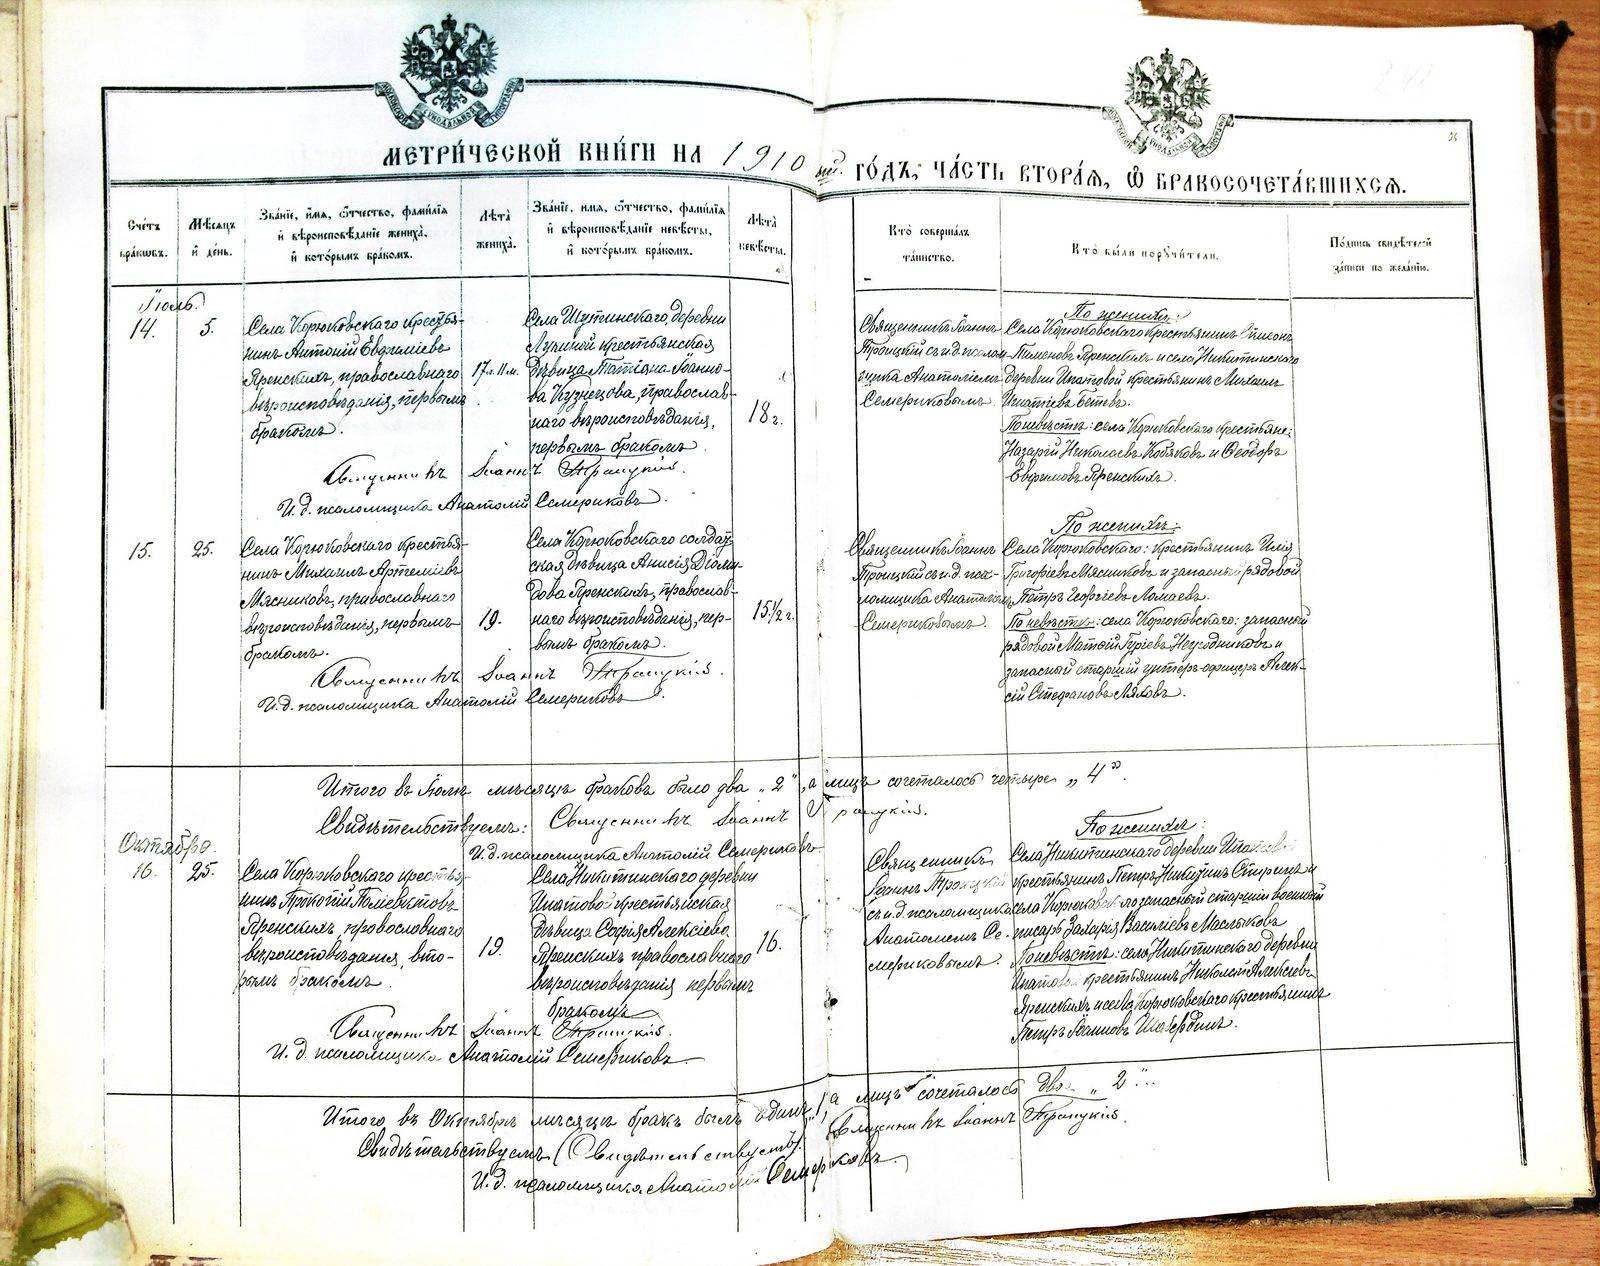 МЕТРИ́ЧЕСКОЙ КНИ́ГИ НА 1910 ый ГО́ДЪ, ЧА́СТЬ ВТОРА́Я, Ѽ БРАКОСОЧЕТА́ВШИХСЯ.
Счетъ браковъ.
Мѣсяцъ и день.
Званіе, имя, ѿчество, фамилія и вѣроисповѣданіе жениха, и которымъ бракомъ.
Лѣта жениха.
Званіе, имя, ѿчество, фамилія и вѣроисповѣданіе невѣсты, и которымъ бракомъ.
Лѣта невѣсты.
Кто совершалъ таинство.
Кто были поручители.
Подпись свидѣтелей записи по желанію.
Іюль.
14.
5.
Села Корюковскаго крестья-
нинъ Антоній Евфиміевъ
Яренскихъ, православнаго
вѣроисповѣданія, первымъ
бракомъ.
17 л. 11 м.
Села Шутинскаго, деревни
Лупиной крестьянская
дѣвица Татіана Іоанно-
ва Кузнецова, православ-
наго вѣроисповѣданія,
первымъ бракомъ.
18 г.
Священникъ Іоаннъ
Троицкій съ и. д. псалом-
щика Анатоліемъ
Семериковымъ.
По женихѣ:
Села Корюковскаго крестьянинъ Симеонъ
Пименовъ Яренскихъ и села Никитинскаго
деревни Ипатовой крестьянинъ Михаилъ
Игнатіевъ Бетевъ.
По невѣстѣ: села Корюковскаго крестьяне:
Назарій Николаевъ Кобяковъ и Ѳеодоръ
Евфимовъ Яренскихъ.
Священникъ Іоаннъ Троицкій.
И. д. псаломщика Анатолій Семериковъ.
15.
25.
Села Корюковскаго крестья-
нинъ Михаилъ Артеміевъ
Мясниковъ, православнаго
вѣроисповѣданія, первымъ
бракомъ.
19.
Села Корюковскаго солдат-
ская дѣвица Анисія Діоми-
дова Яренскихъ, православ-
наго вѣроисповѣданія, пер-
вымъ бракомъ.
15 1/2 г.
Священникъ Іоаннъ
Троицкій съ и. д. пса-
ломщика Анатоліемъ
Семериковымъ.
По женихѣ:
Села Корюковскаго: крестьянинъ Илія
Григоріевъ Мясниковъ и запасный рядовой
Петръ Георгіевъ Ломаевъ.
По невѣстѣ: села Корюковскаго: запасный
рядовой Матѳій Гуріевъ Неугодниковъ и
запасный старшій унтеръ-офицеръ Алек-
сій Стефановъ Ляховъ.
Священникъ Іоаннъ Троицкій.
И. д. псаломщика Анатолій Семериковъ.
Итого въ Іюлѣ мѣсяцѣ браковъ было два „2“, а лицъ сочеталось четыре „4“.
Свидѣтельствуемъ: Священникъ Іоаннъ Троицкій.
И. д. псаломщика Анатолій Семериковъ
Октябрь.
16.
25.
Села Корюковскаго крестья-
нинъ Прокопій Поліевктовъ
Яренскихъ, православнаго
вѣроисповѣданія, вто-
рымъ бракомъ.
19.
Села Никитинскаго деревни
Ипатовой крестьянская
дѣвица Софія Алексіева
Яренскихъ православнаго
вѣроисповѣданія первымъ
бракомъ
16.
Священникъ
Іоаннъ Троицкій
съ и. д. псаломщика
Анатоліемъ Се-
мериковымъ.
По женихѣ:
Села Никитинскаго деревни Ипатовой
крестьянинъ Петръ Никитинъ и
села Корюковскаго запасный старшій военный
писарь Захарія Василіевъ Маслыковъ
По невѣстѣ: села Никитинскаго деревни
Ипатовой крестьянинъ Николай Алексіевъ
Яренскихъ и села Корюковскаго крестьянинъ
Петръ Іоанновъ Шабердинъ.
Священникъ Іоаннъ Троицкій.
И. д. псаломщика Анатолій Семериковъ.
Итого въ Октябрѣ мѣсяцѣ бракъ былъ одинъ „1“, а лицъ сочеталось два „2“.
Свидѣтельствуемъ (Свидѣтельствуемъ). Священникъ Іоаннъ Троицкій.
И. д. псаломщика Анатолій Семериковъ.